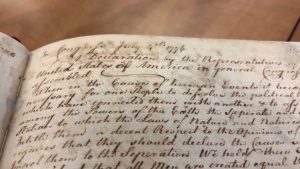 In Congress July 4th 1776
A Declaration by the Representatives of
United States of America in general
assembled
When in the Course of human Events it
necessary for one People to dissolve the political
which have connected them with another & to
among the the Earth the separate and
Station to which the Laws of Nature and
Intitle them a decent Respect to the Opinions
requires that they should declare the causes
impel them to the Seperation. We hold these
that all Men are created equal